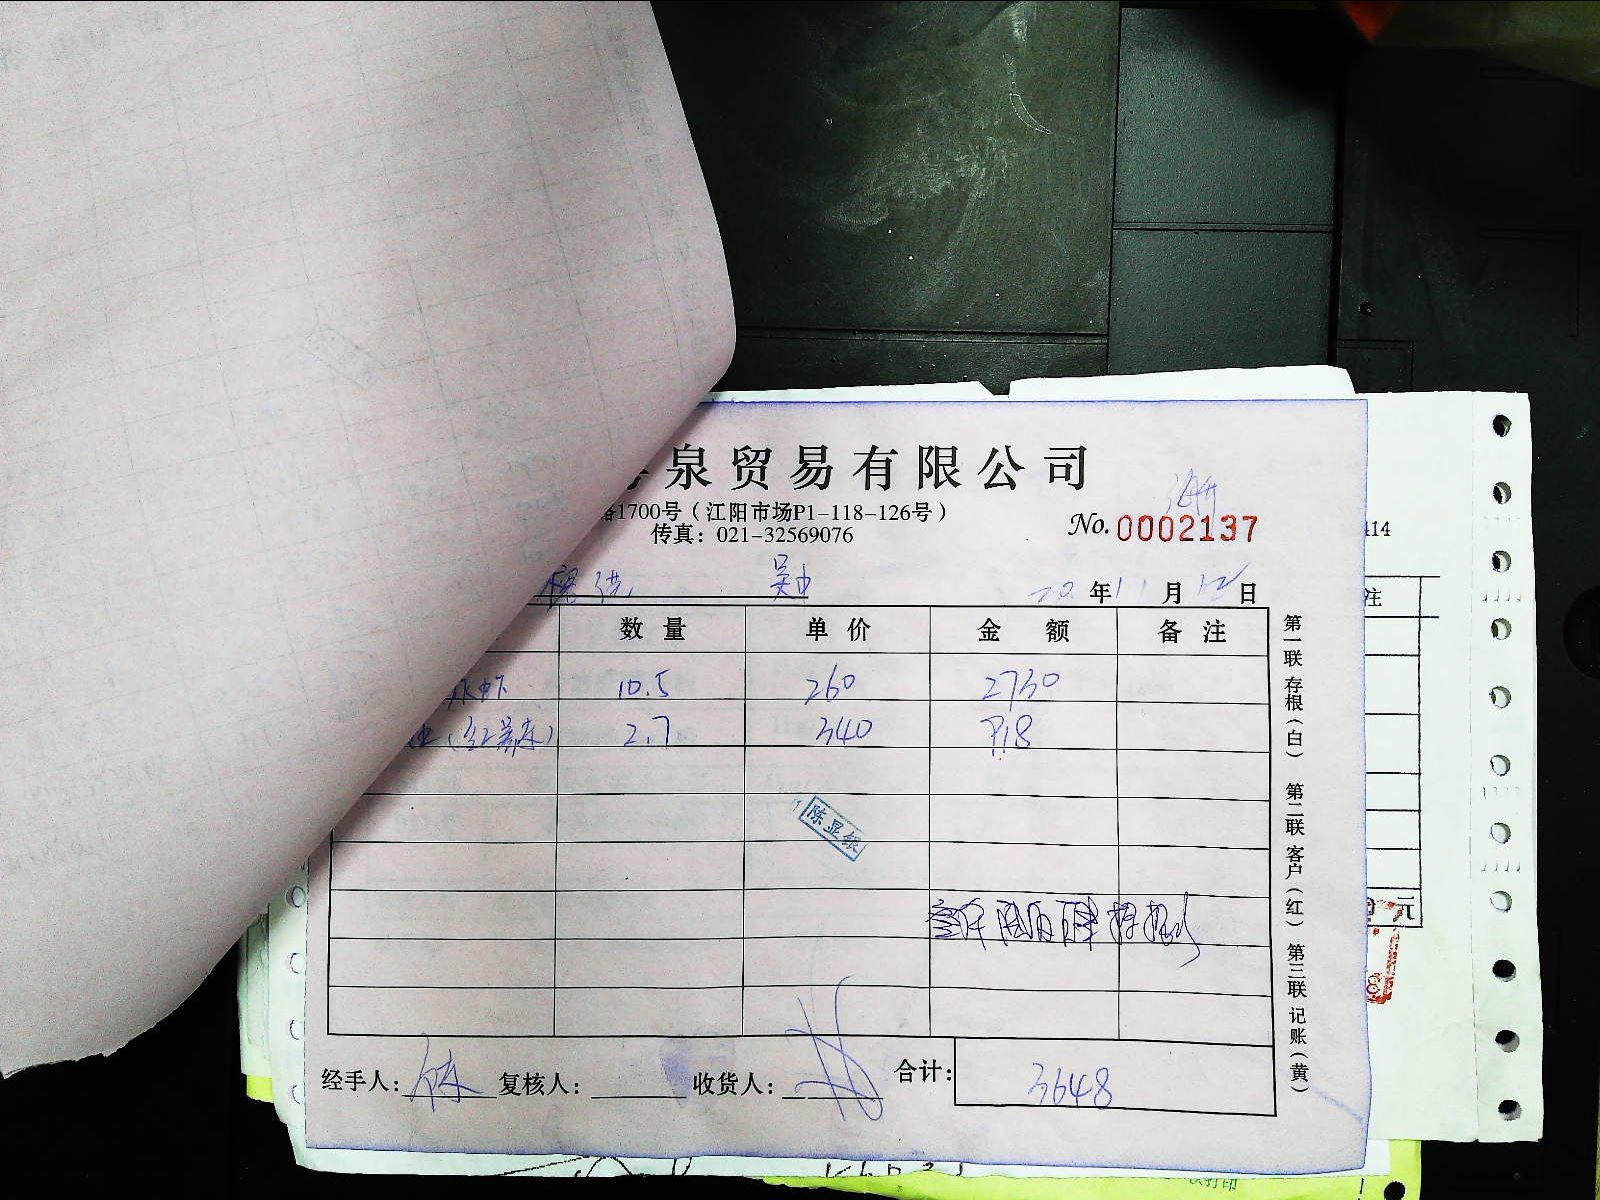 泉贸易有限公司
1700号（江阳市场P1-118-126号）
传真：021-32569076
No. 0002137
414
吴中
20 年 11 月 12 日
数量 单价 金额 备注
注
冰虾 10.5 260 2730
2.7 340 918
陈显银
叁仟陆佰肆拾捌
元
经手人： 复核人： 收货人： 合计： 3648
第一联 存根（白） 第二联 客户（红） 第三联 记账（黄）